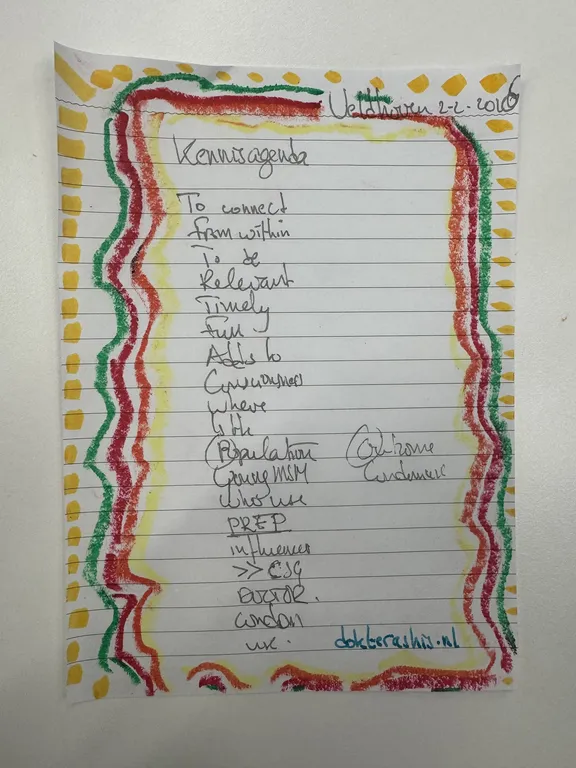 Veldhoven 2-2-2026
Kennisagenda
To connect
from within
To be
Relevant
Timely
Fun
Adds to
Consciousness
where
with
(Population
Young MSM
Who use
PREP
influences
>> CSG
London
UK.
dokterashis.nl